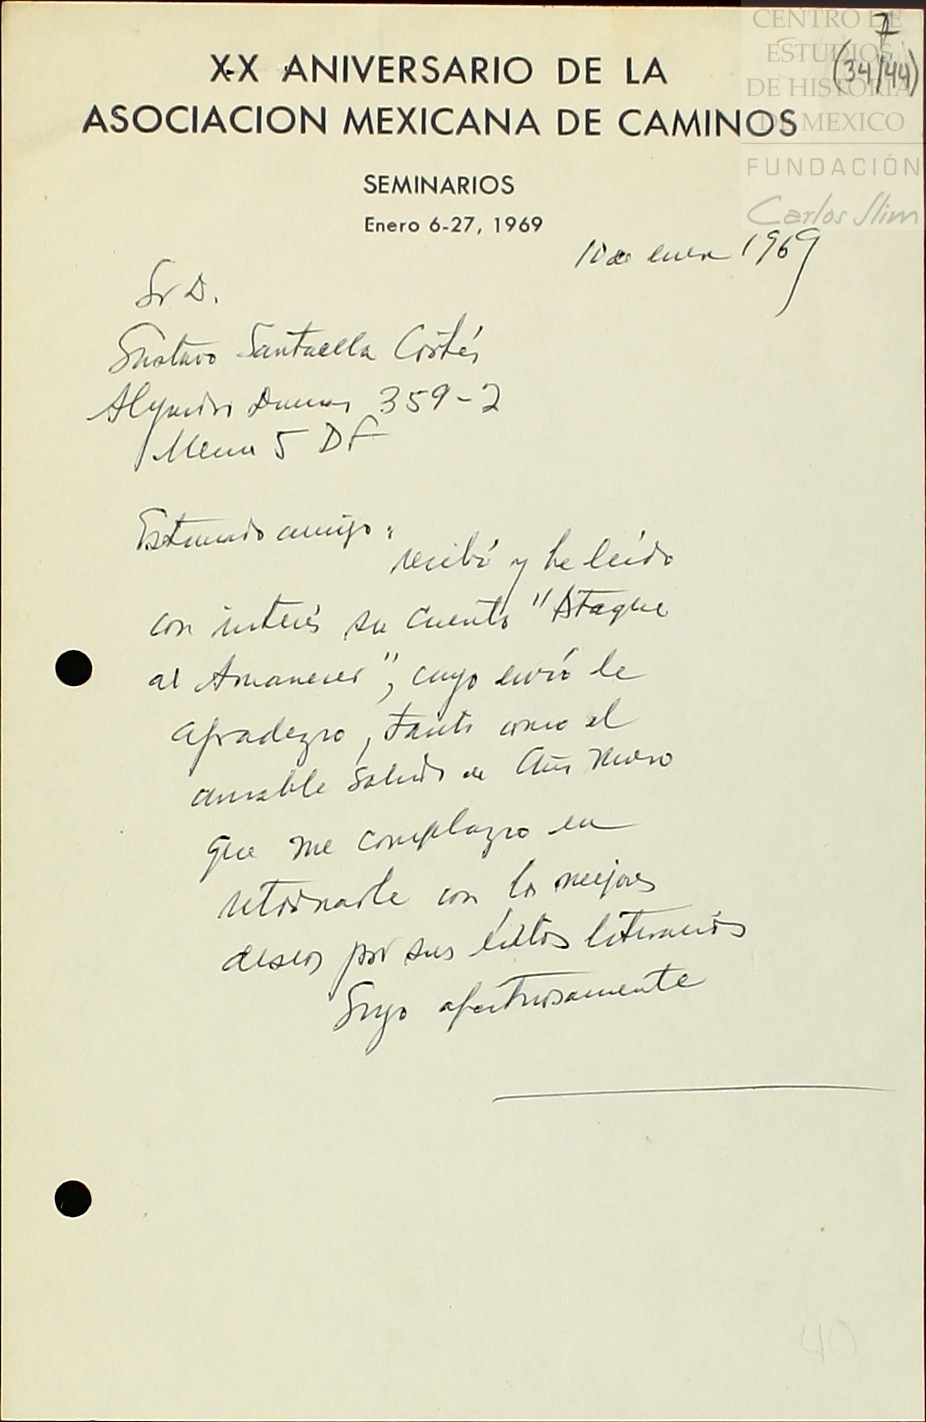 CENTRO DE
ESTUDIOS
DE HISTORIA
DE MEXICO
FUNDACIÓN
Carlos Slim
7
(34/44)
XX ANIVERSARIO DE LA
ASOCIACION MEXICANA DE CAMINOS
SEMINARIOS
Enero 6-27, 1969
10 de enero 1969
Sr D.
Gustavo Santaella Cortés
Alejandro Dumas 359-2
Mexico 5 DF
Estimado amigo:
recibí y he leído
con interés su cuento "Ataque
al Amanecer", cuyo envío le
agradezco, tanto como el
amable saludo de Año Nuevo
que me complazco en
retornarle con los mejores
deseos por sus éxitos literarios
Suyo afectuosamente
40